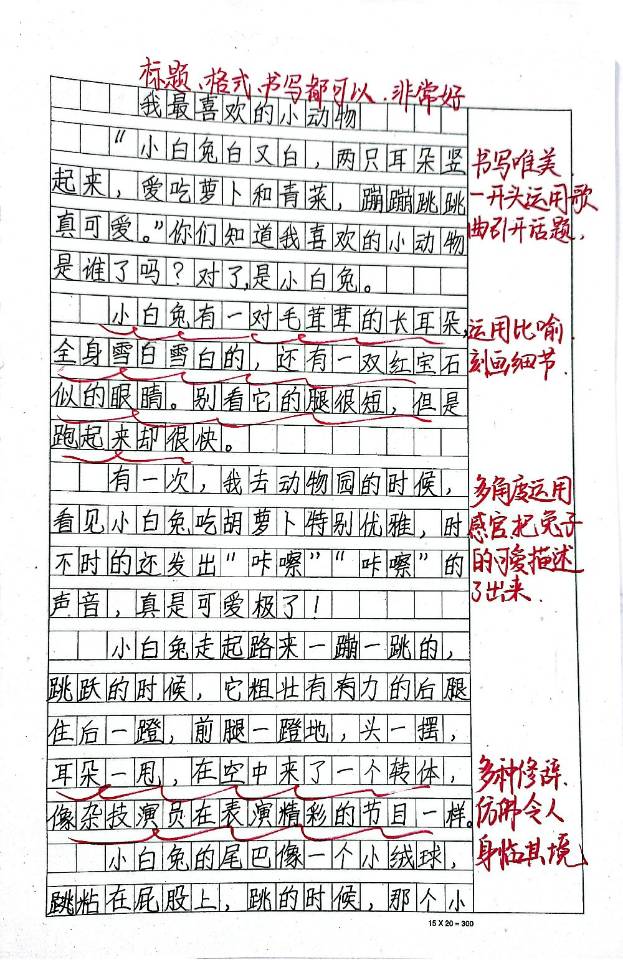 标题、格式、书写都可以、非常好
我最喜欢的小动物
“小白兔白又白，两只耳朵竖
起来，爱吃萝卜和青菜，蹦蹦跳跳
真可爱。”你们知道我喜欢的小动物
是谁了吗？对了，是小白兔。
小白兔有一对毛茸茸的长耳朵，
全身雪白雪白的，还有一双红宝石
似的眼睛。别看它的腿很短，但是
跑起来却很快。
有一次，我去动物园的时候，
看见小白兔吃胡萝卜特别优雅，时
不时的还发出“咔嚓”“咔嚓”的
声音，真是可爱极了！
小白兔走起路来一蹦一跳的，
跳跃的时候，它粗壮有有力的后腿
住后一蹬，前腿一蹬地，头一摆，
耳朵一甩，在空中来了一个转体，
像杂技演员在表演精彩的节目一样。
小白兔的尾巴像一个小绒球，
跳粘在屁股上，跳的时候，那个小
书写唯美.
一开头运用歌
曲引开话题.
运用比喻
刻画细节.
多角度运用
感官把兔子
的可爱描述
了出来.
多种修辞.
仿佛令人
身临其境
15 X 20 = 300